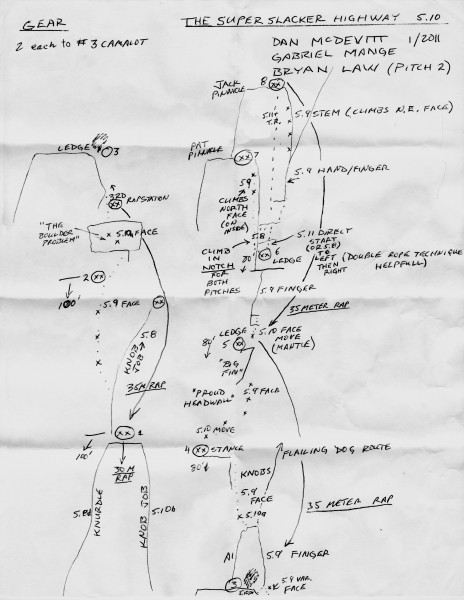 GEAR
THE SUPER SLACKER HIGHWAY 5.10
2 each to #3 CAMALOT
DAN McDEVITT 1/2011
GABRIEL MANGE
BRYAN LAW (PITCH 2)
JACK
PINNACLE
8 XX
5.11+
T.R.
5.9 STEM (CLIMBS N.E. FACE)
LEDGE 3
PAT
PINNACLE
XX 7
3RD
XX RAPSTATION
5.9
CLIMBS
NORTH
FACE
(ON
INSIDE)
5.9 HAND/FINGER
"THE
BOULDER
PROBLEM"
5.10a FACE
5.8
5.11 DIRECT
START
(OR 5.8) TO
LEFT
THEN
RIGHT
(DOUBLE ROPE TECHNIQUE
HELPFULL)
CLIMB
IN
NOTCH
FOR
BOTH
PITCHES
30'
XX 6
LEDGE
2 XX
100'
5.9 FACE
XX
5.9 FINGER
5.8
KNOB JOB
35M RAP
35 METER RAP
LEDGE
80'
5 XX
5.10 FACE
MOVE
(MANTLE)
"BIG
FIN"
"PROUD
HEADWALL"
5.9 FACE
XX 1
100'
30 M
RAP
5.10 MOVE
4 XX STANCE
80'
FLAILING DOG ROUTE
KNOBS
5.9
FACE
5.10a
35 METER RAP
5.8
KNURDLE
KNOB JOB
5.10b
A1
5.9 FINGER
3
5.9 VAR.
FACE